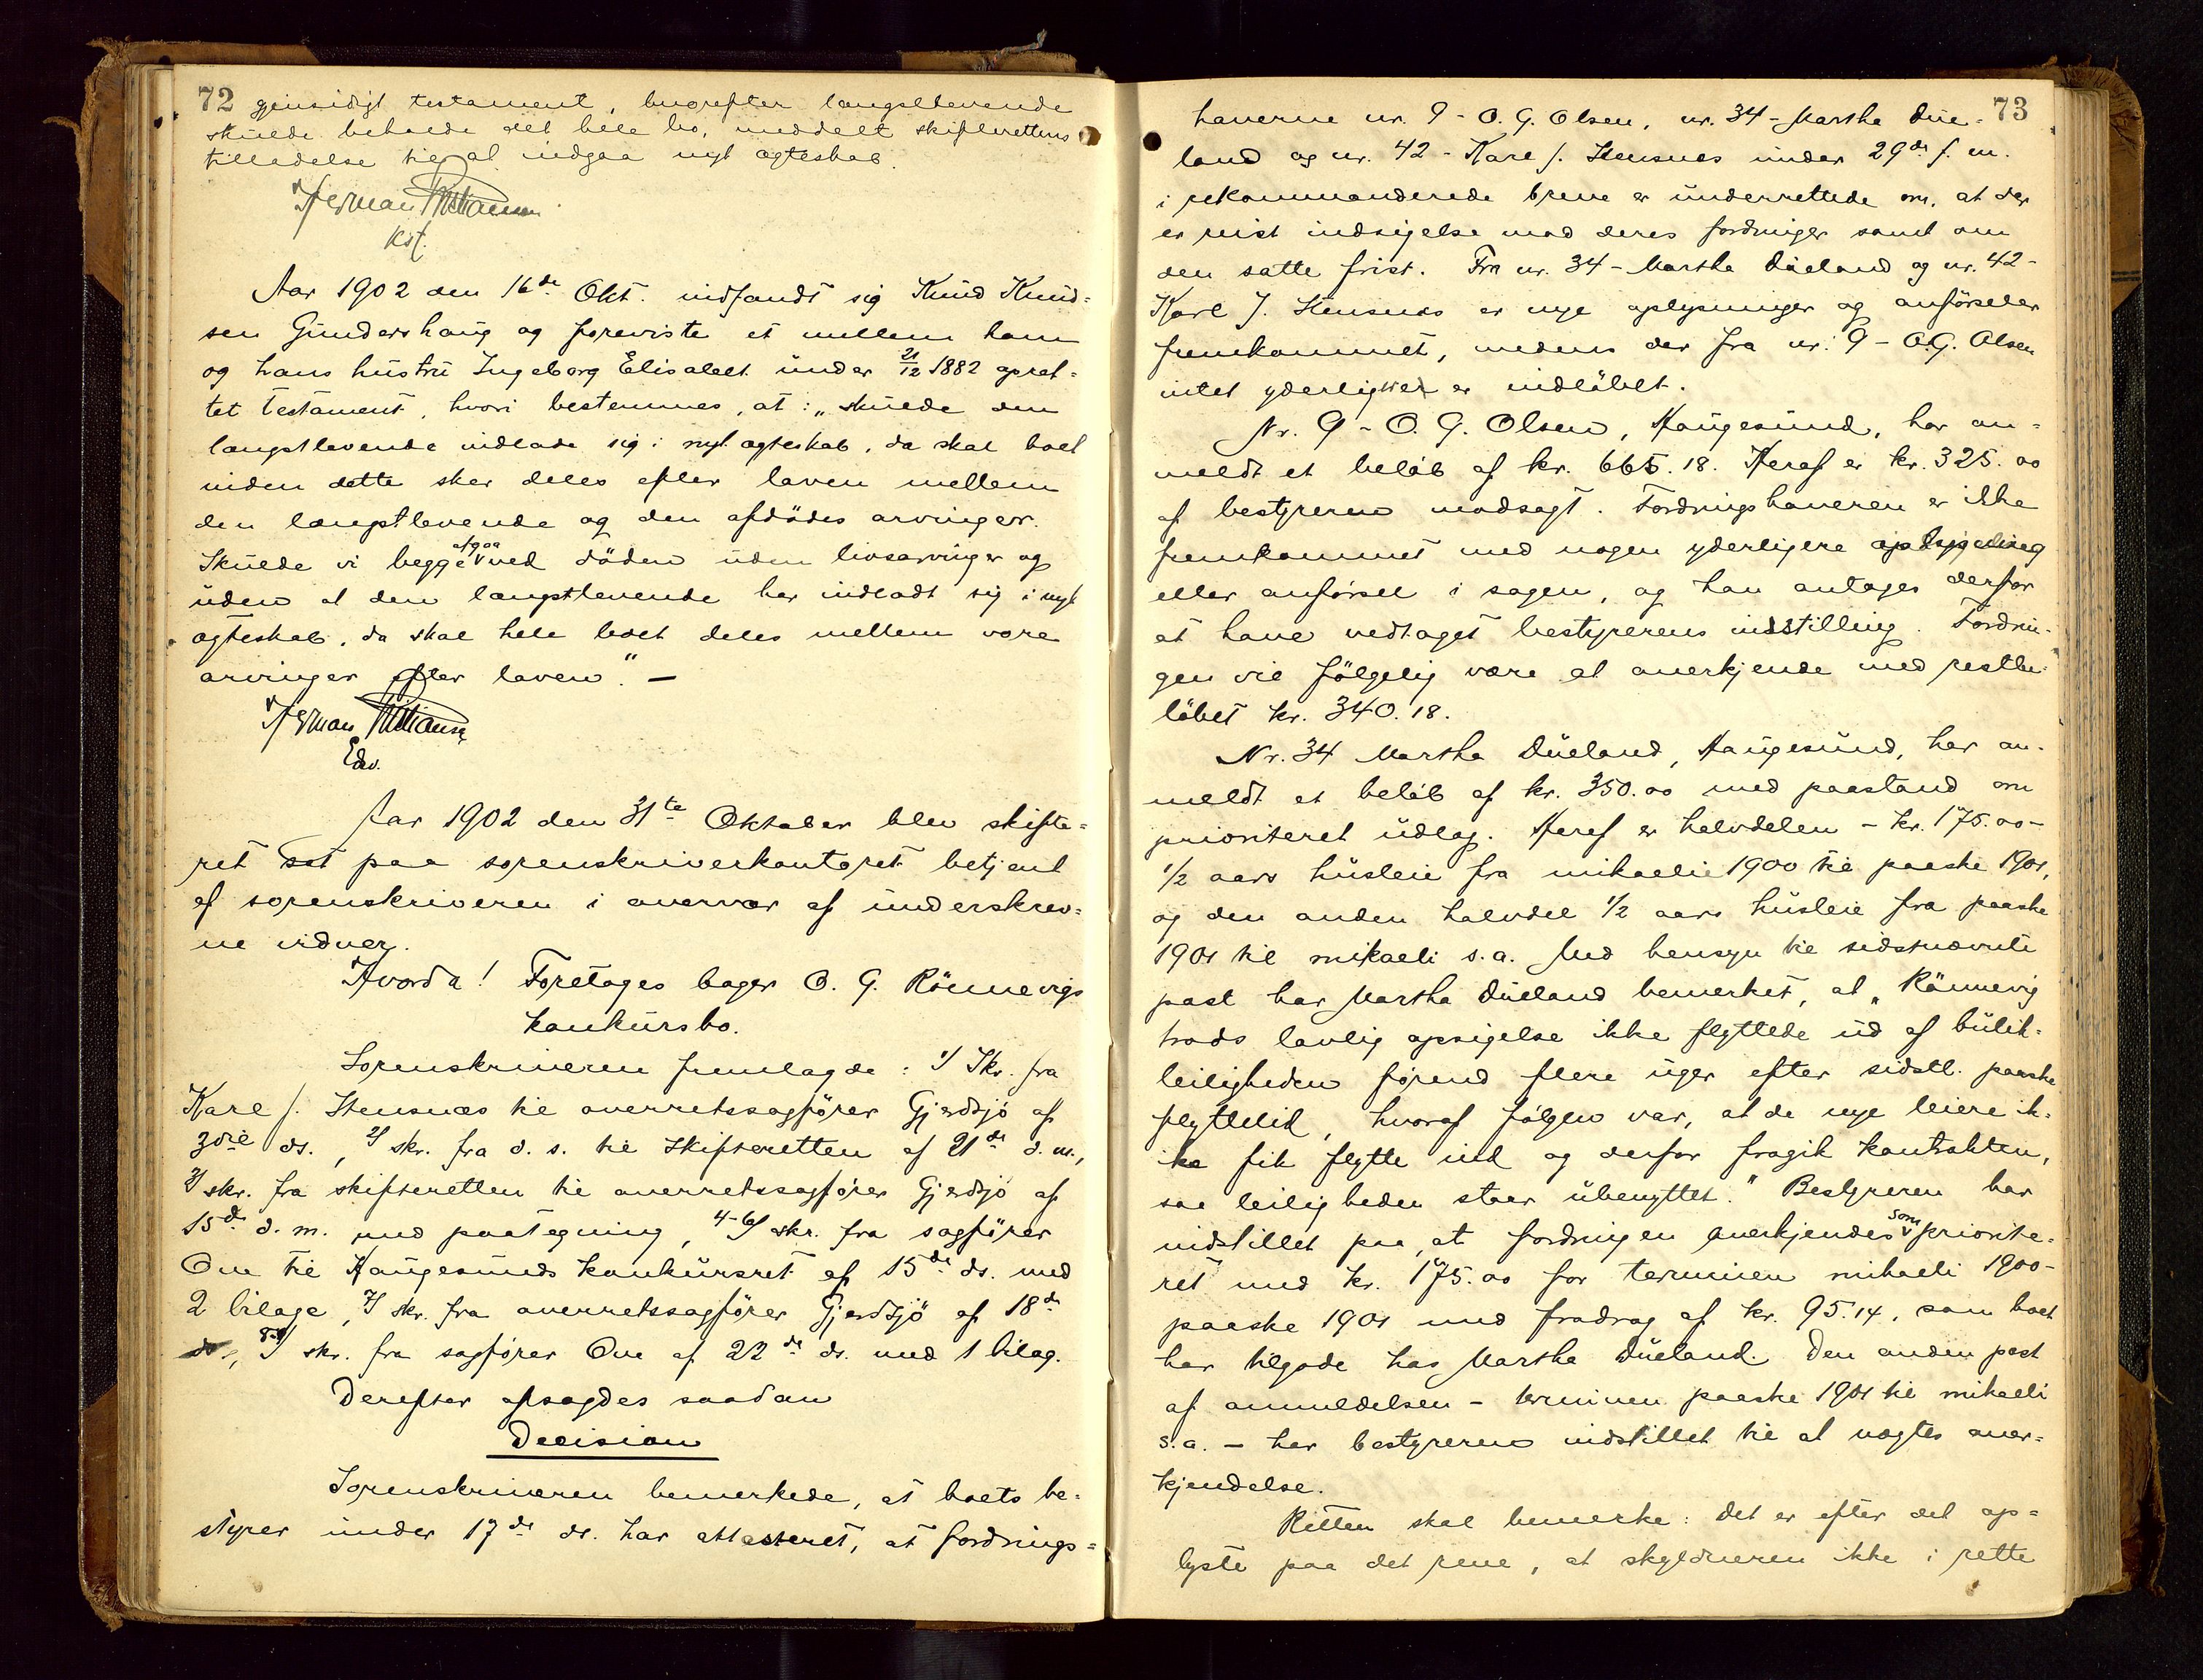 72 gjensidigt testament, hvorefter længstlevende
skulde beholde det hele bo, meddelt skifterettens
tilladelse til at indgaa nyt ægteskab.
Herman Christiansen
Kst.
Aar 1902 den 16de Okt. indfandt sig Knud Knud=
sen Gundershaug og foreviste et mellem ham
og hans hustru Ingeborg Elisabet under 21/12 1882 opret=
tet testament, hvori bestemmes, at: „skulde den
længstlevende indlade sig i nyt ægteskab, da skal boet
inden dette sker deles efter loven mellem
den længstlevende og den afdödes arvinger.
Skulde vi begge afgaa ved döden uden livsarvinger og
uden at den længstlevende har indladt sig i nyt
ægteskab, da skal hele boet deles mellem vore
arvinger efter loven." —
Herman Christiansen
Edv.
Aar 1902 den 31te Oktober blev skifte=
ret sat paa sorenskriverkontoret betjent
af sorenskriveren i overvær af underskrev=
ne vidner.
Hvorda! Foretoges bager O. G. Rönnevigs
konkursbo.
Sorenskriveren fremlagde: 1/ Skr. fra
Karl J. Stensnes til overretssagförer Gjerdsjö af
3die ds., 2/ skr. fra d. s. til Skifteretten af 21de d. m.,
3/ skr. fra skifteretten til overretssagförer Gjerdsjö af
15de d. m. med paategning, 4-6/ skr. fra sagförer
Ome til Haugesunds konkursret af 15de ds. med
2 bilage, 7/ skr. fra overretssagförer Gjerdsjö af 18de
ds., 8-9/ skr. fra sagförer Ome af 22de ds. med 1 bilag.
Derefter afsagdes saadan
Decision
Sorenskriveren bemerkede, at boets be=
styrer under 17de ds. har attesteret, at fordrings=
73
haverne nr. 9 - O. G. Olsen, nr. 34 - Martha Due=
land og nr. 42 - Karl J. Stensnes under 29de f. m.
i rekommanderede breve er underrettede om, at der
er reist indsigelse mod deres fordringer samt om
den satte frist. Fra nr. 34 - Martha Dueland og nr. 42 -
Karl J. Stensnes er nye oplysninger og anförseler
fremkommet, medens der fra nr. 9 - O.G. Olsen
intet yderligere er indlöbet.
Nr. 9 - O. G. Olsen, Haugesund, har an=
meldt et belöb af kr. 665.18. Heraf er kr. 325.00
af bestyreren modsagt. Fordringshaveren er ikke
fremkommet med nogen yderligere oplysning
eller anförsel i sagen, og han antages derfor
at have vedtaget bestyrerens indstilling. Fordrin=
gen vil fölgelig være at anerkjende med restbe=
löbet kr. 340.18.
Nr. 34 Martha Dueland, Haugesund, har an=
meldt et belöb af kr. 350.00 med paastand om
prioriteret udlæg. Heraf er halvdelen - kr. 175.00 -
1/2 aars husleie fra mikaeli 1900 til paaske 1901,
og den anden halvdel 1/2 aars husleie fra paaske
1901 til mikaeli s. a. Med hensyn til sidstnævnte
post har Martha Dueland bemerket, at „Rönnevig
trods lovlig opsigelse ikke flyttede ud af butik=
leiligheden förend flere uger efter sidstl. paaske
flyttetid, hvoraf fölgen var, at de nye leiere ik=
ke fik flytte ind og derfor fragik kontrakten,
saa leiligheden staar ubenyttet." Bestyreren har
indstillet paa, at fordringen anerkjendes som priorite=
ret med kr. 175.00 for terminen mikaeli 1900 -
paaske 1901 med fradrag af kr. 95.14, som boet
har tilgode hos Martha Dueland. Den anden post
af anmeldelsen - terminen paaske 1901 til mikaeli
s. a. - har bestyreren indstillet til at nægtes aner=
kjendelse.
Retten skal bemerke: Det er efter det op=
lyste paa det rene, at skyldneren ikke i rette